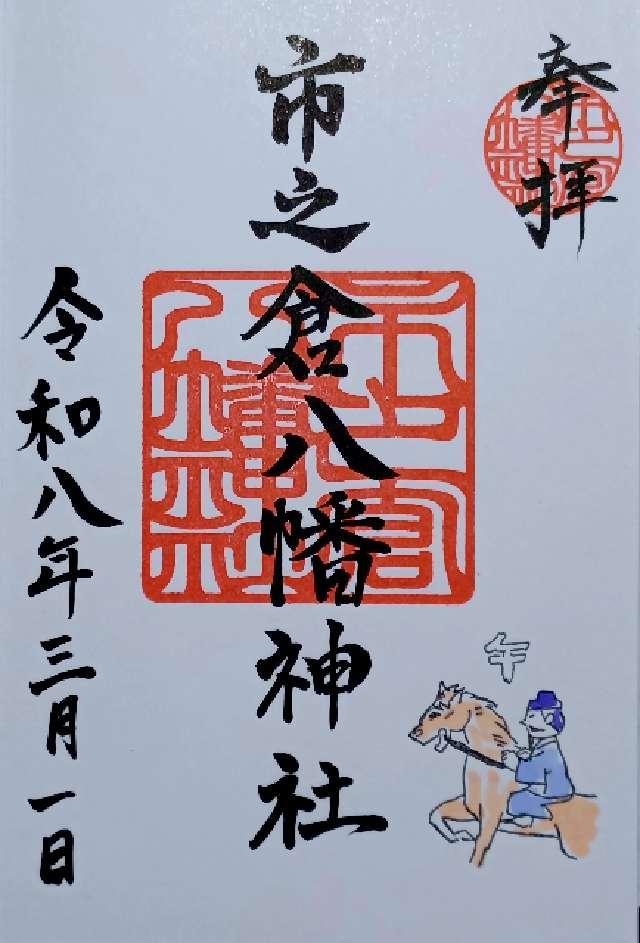 奉拝
市之倉八幡神社
令和八年三月一日
午